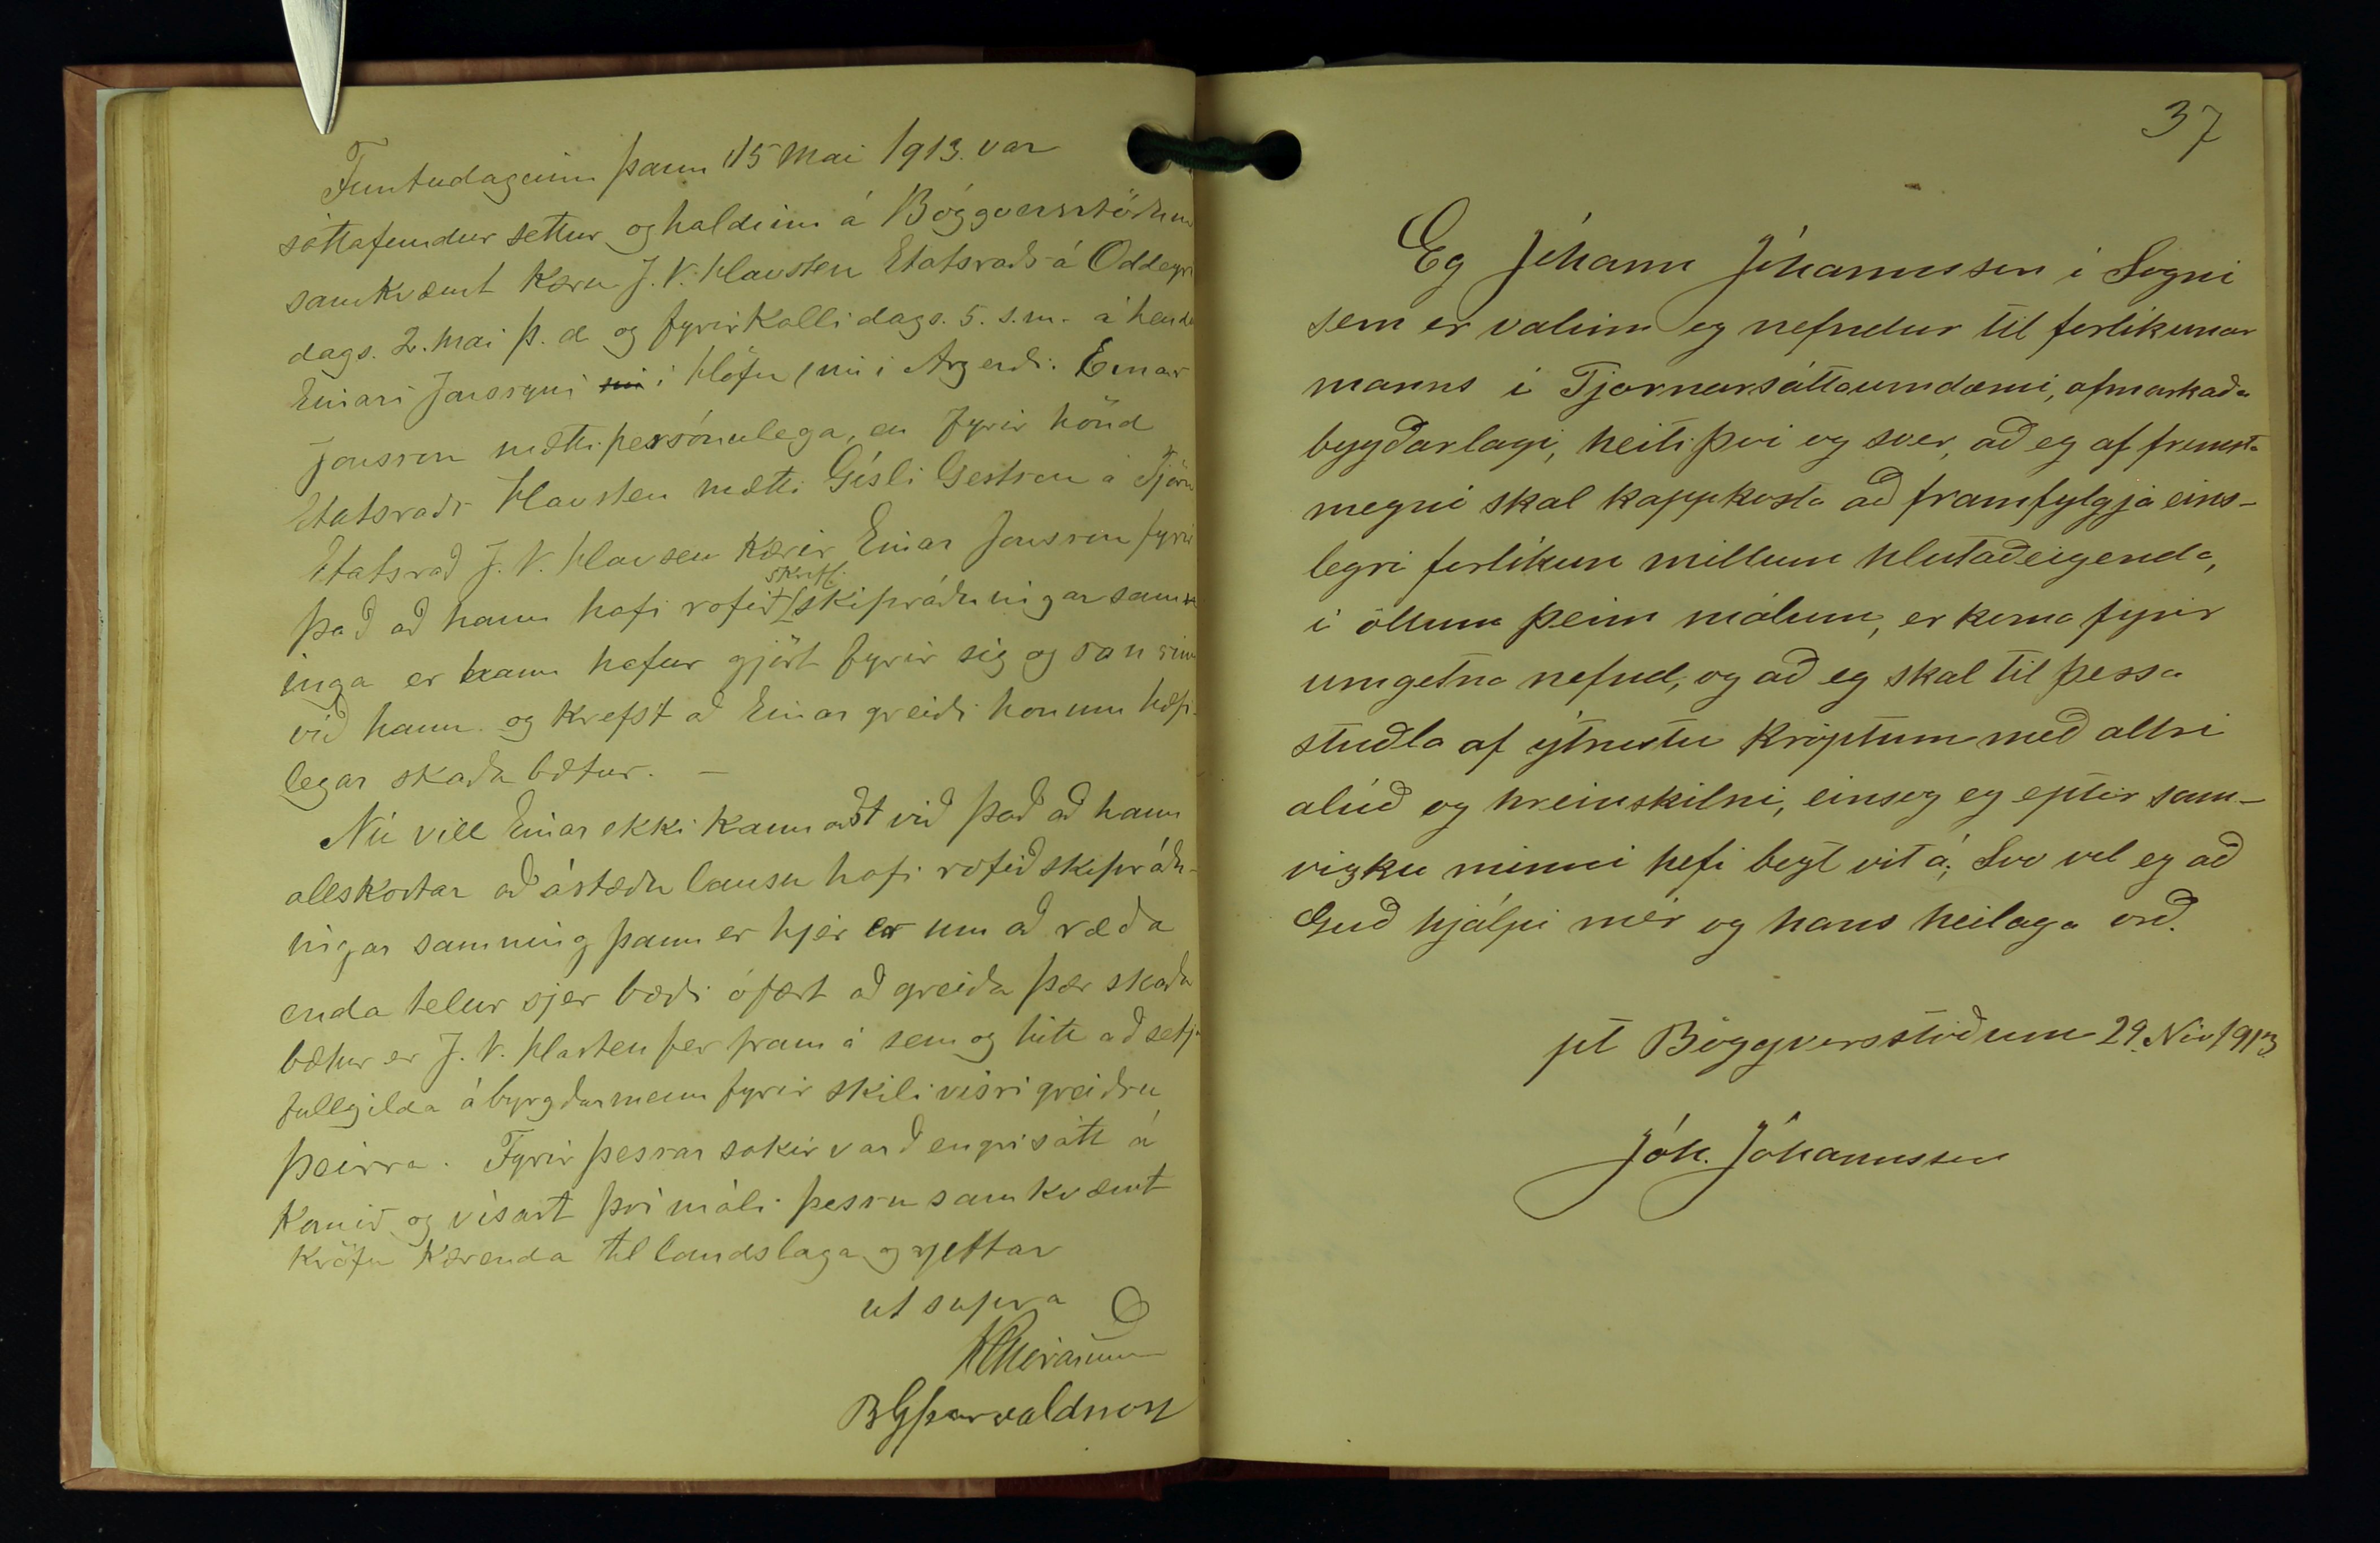 Fimtudaginn þann 15 Mai 1913. var
sáttafundur settur og haldinn á Böggversstöðum
samkvæmt Kæru J. V. Havsten Etatsraðs á Oddeyri
dags. 2. mai þ. á og fyrirkalli dags. 5. s.m. á hendur
Einari Jonssyni í Höfn (nú í Argerði. Einar
Jonsson mætti persónulega, en fyrir hönd
Etatsraðs Havsten mætti Gísli Gestson á Tjörn
Etatsrað J. V. Havsen Kærir Einar Jonsson fyrir
skrifl.
það að hann hafi rofið skipráðningarsamn
inga er hann hefur gjört fyrir sig og son sinn
við hann. og Krefst að Einar greiði honum hæfi-
legar skaða bætur. —
Nú vill Einar ekki Kannast við það að hann
allskostar að ástæðu lausu hafi rofið skipráðn-
ingar samning þann er hjer er um að ræða
enda telur sjer bæði ófært að greiða þær skaða
bætur er J. V. Havsten fer fram á sem og hitt að setja
fullgilda ábyrgðarmenn fyrir skilivísri greiðslu
þeirra. Fyrir þessar sakir varð engri sátt á
Komið og vísast því máli þessu samkvæmt
Kröfu Kærenda til landslaga og rjettar
ut supra
BGÞorvaldsson
37
Eg Jóhann Jóhannsson í Sogni
sem er valinn og nefndur til forlikunar
manns í Tjarnarsáttaumdæmi, afmarkaða
bygðarlagi, heiti því og sver, að eg af fremsta
megni skal kappkosta að framfylgja eins-
legri forlikun millum hlutaðeigenda,
í öllum þeim málum, er koma fyrir
umgetna nefnd, og að eg skal til þessa
stuðla af ýtrustu kröptum með allri
alúð og hreinskilni, einsog eg eptir sam-
vizku minni hefi bezt vit á; Svo vel eg að
Guð hjálpi mér og hans heilaga orð.
pt Böggversstöðum 29. Nóv 1913
Jóh. Jóhannsson